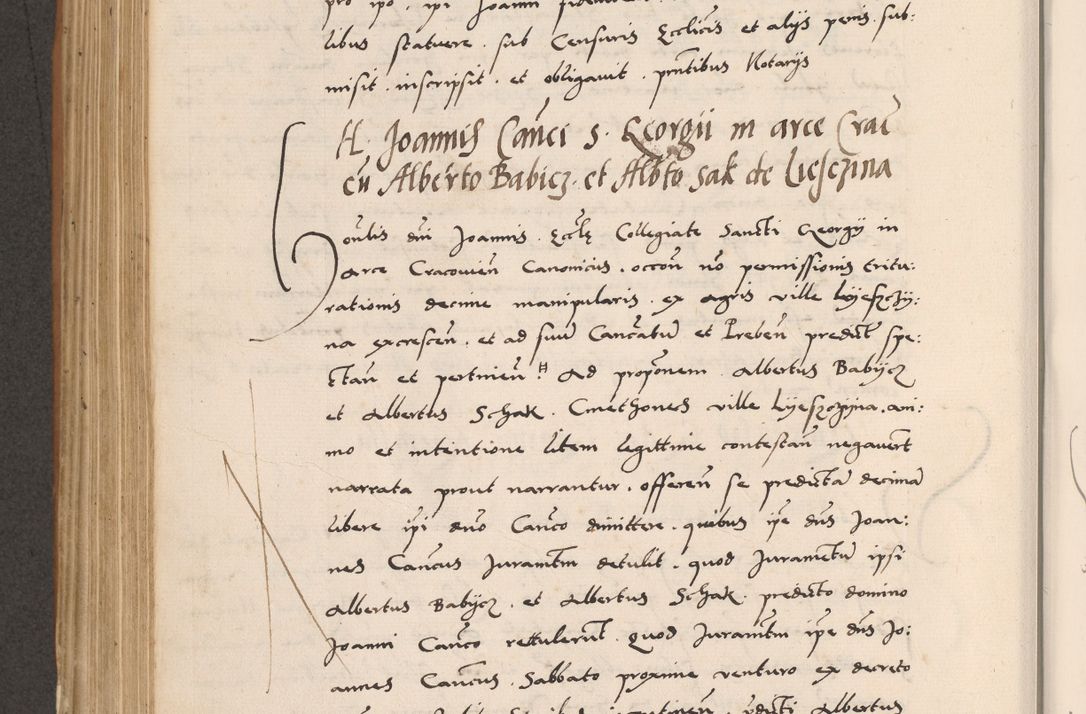 pro ipō. ipi Joanni
libus statuere. sub Censuris Ecclīcis et alijs penis. sub:
misit. inscripsit. et obligavit. pn̄tibus Notarijs
H. Joannis Can̄ci S. Georgii in arce Crac̄
cū Alberto Babicz. et Alb̄to Sak de Liesczina
onūlis dn̄i Joannis. Eccl̄ę Collegiate Sancti Georgij in
Arce Cracovien̄ Canonicus. occōn nō permissionis tritu:
rationis decime manipularis. ex agris ville Lyeszczy:
na excrescen̄. et ad suū Canc̄atum̄ et Preben̄ predict̄ spe:
ctan̄ et pertinen̄. Ad propōnem. Albertus Babijcz
et Albertus Schak. Cmethones ville Lijeszczijna. ani:
mo et intentione litem legittime contestan̄ negaver̄t
narrata prout narrantur. offeren̄ se predictā decimā
libere ipī dn̄o Can̄co dimittere. quibus ip̄e dn̄s Joan:
nes Can̄cus Juramtm̄ detulit. quod Juramentū ipsi
Albertus Babijcz. et Albertus Schak. predicto domino
Joanni Can̄co rettulerūt. Quod Juramtm̄ ip̄e dn̄s Jo:
annes Can̄cus. Sabbato proxime venturo ex decreto
Albertus